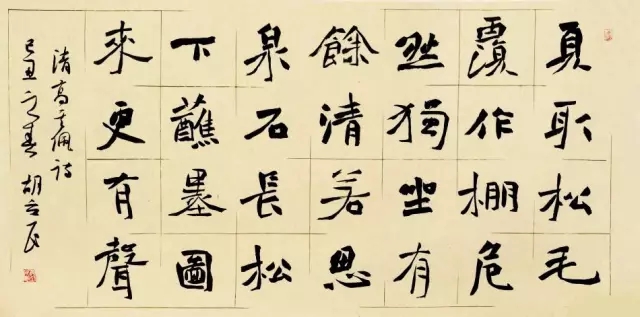 夏取松毛
覆作棚危
然獨坐有
餘清若思
泉石長松
下蘸墨圖
來更有聲
清高其佩詩
己丑 春 胡 民